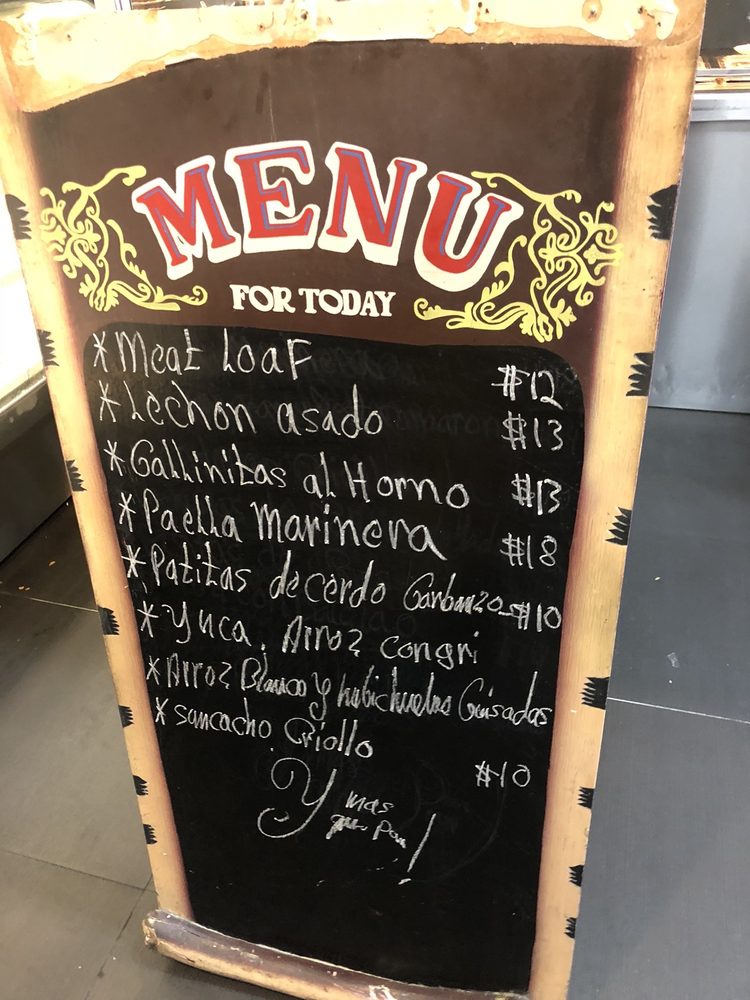 MENU
FOR TODAY
* Meat Loaf $12
* Lechon asado $13
* Gallinitas al Horno $13
* Paella Marinera $18
* Patitas de cerdo Garbanzo - $10
* Yuca, Arroz congri
* Arroz Blanco y habichuelas Guisadas
* Sancacho Criollo $10
Y mas
!